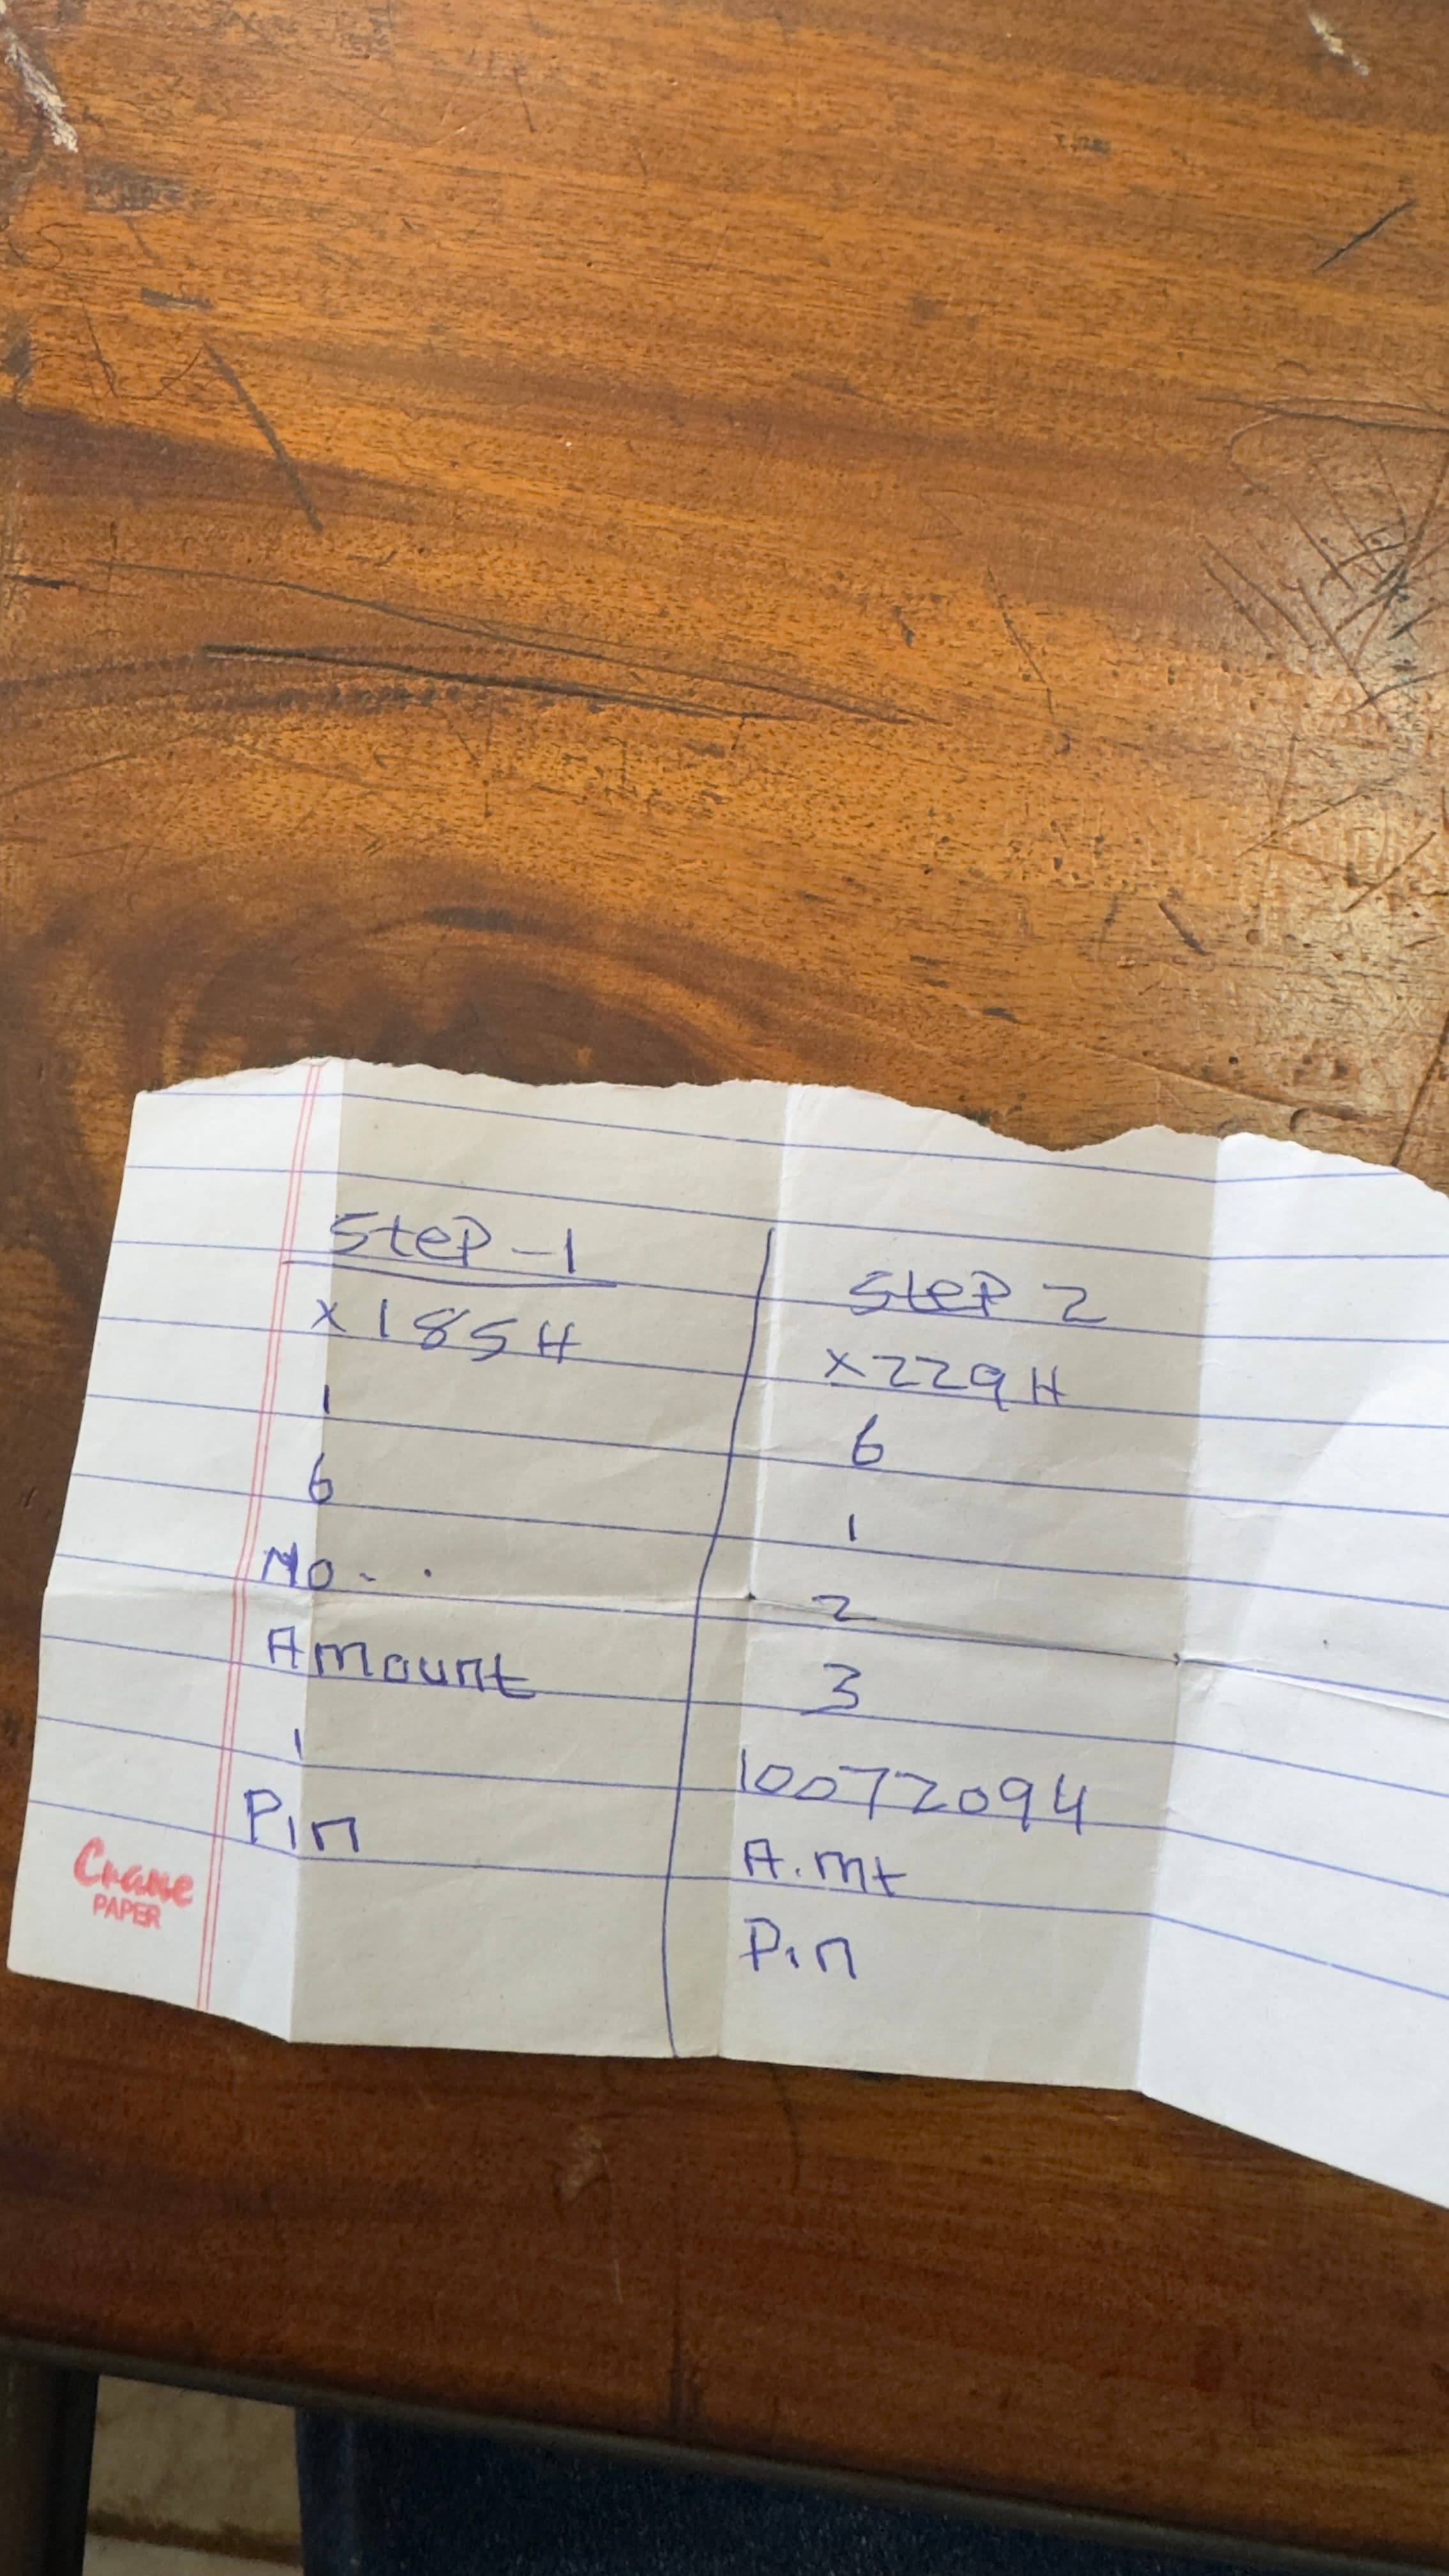 Step - 1
x185H
1
6
No - .
Amount
1
Pin
Crane
PAPER
Step 2
x229H
6
1
2
3
10072094
A.mt
Pin